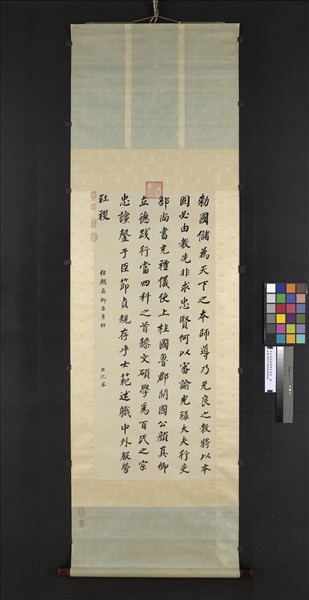 勅國儲為天下之本師導乃元良之教將以本
固必由教先非求忠賢何以審諭光祿大夫行吏
部尚書充禮儀使上柱國魯郡開國公顏真卿
立德踐行當四科之首懿文碩學為百氏之宗
忠讜罄于臣節貞規存乎士範述職中外服勞
社稷
臨顏真卿告身帖